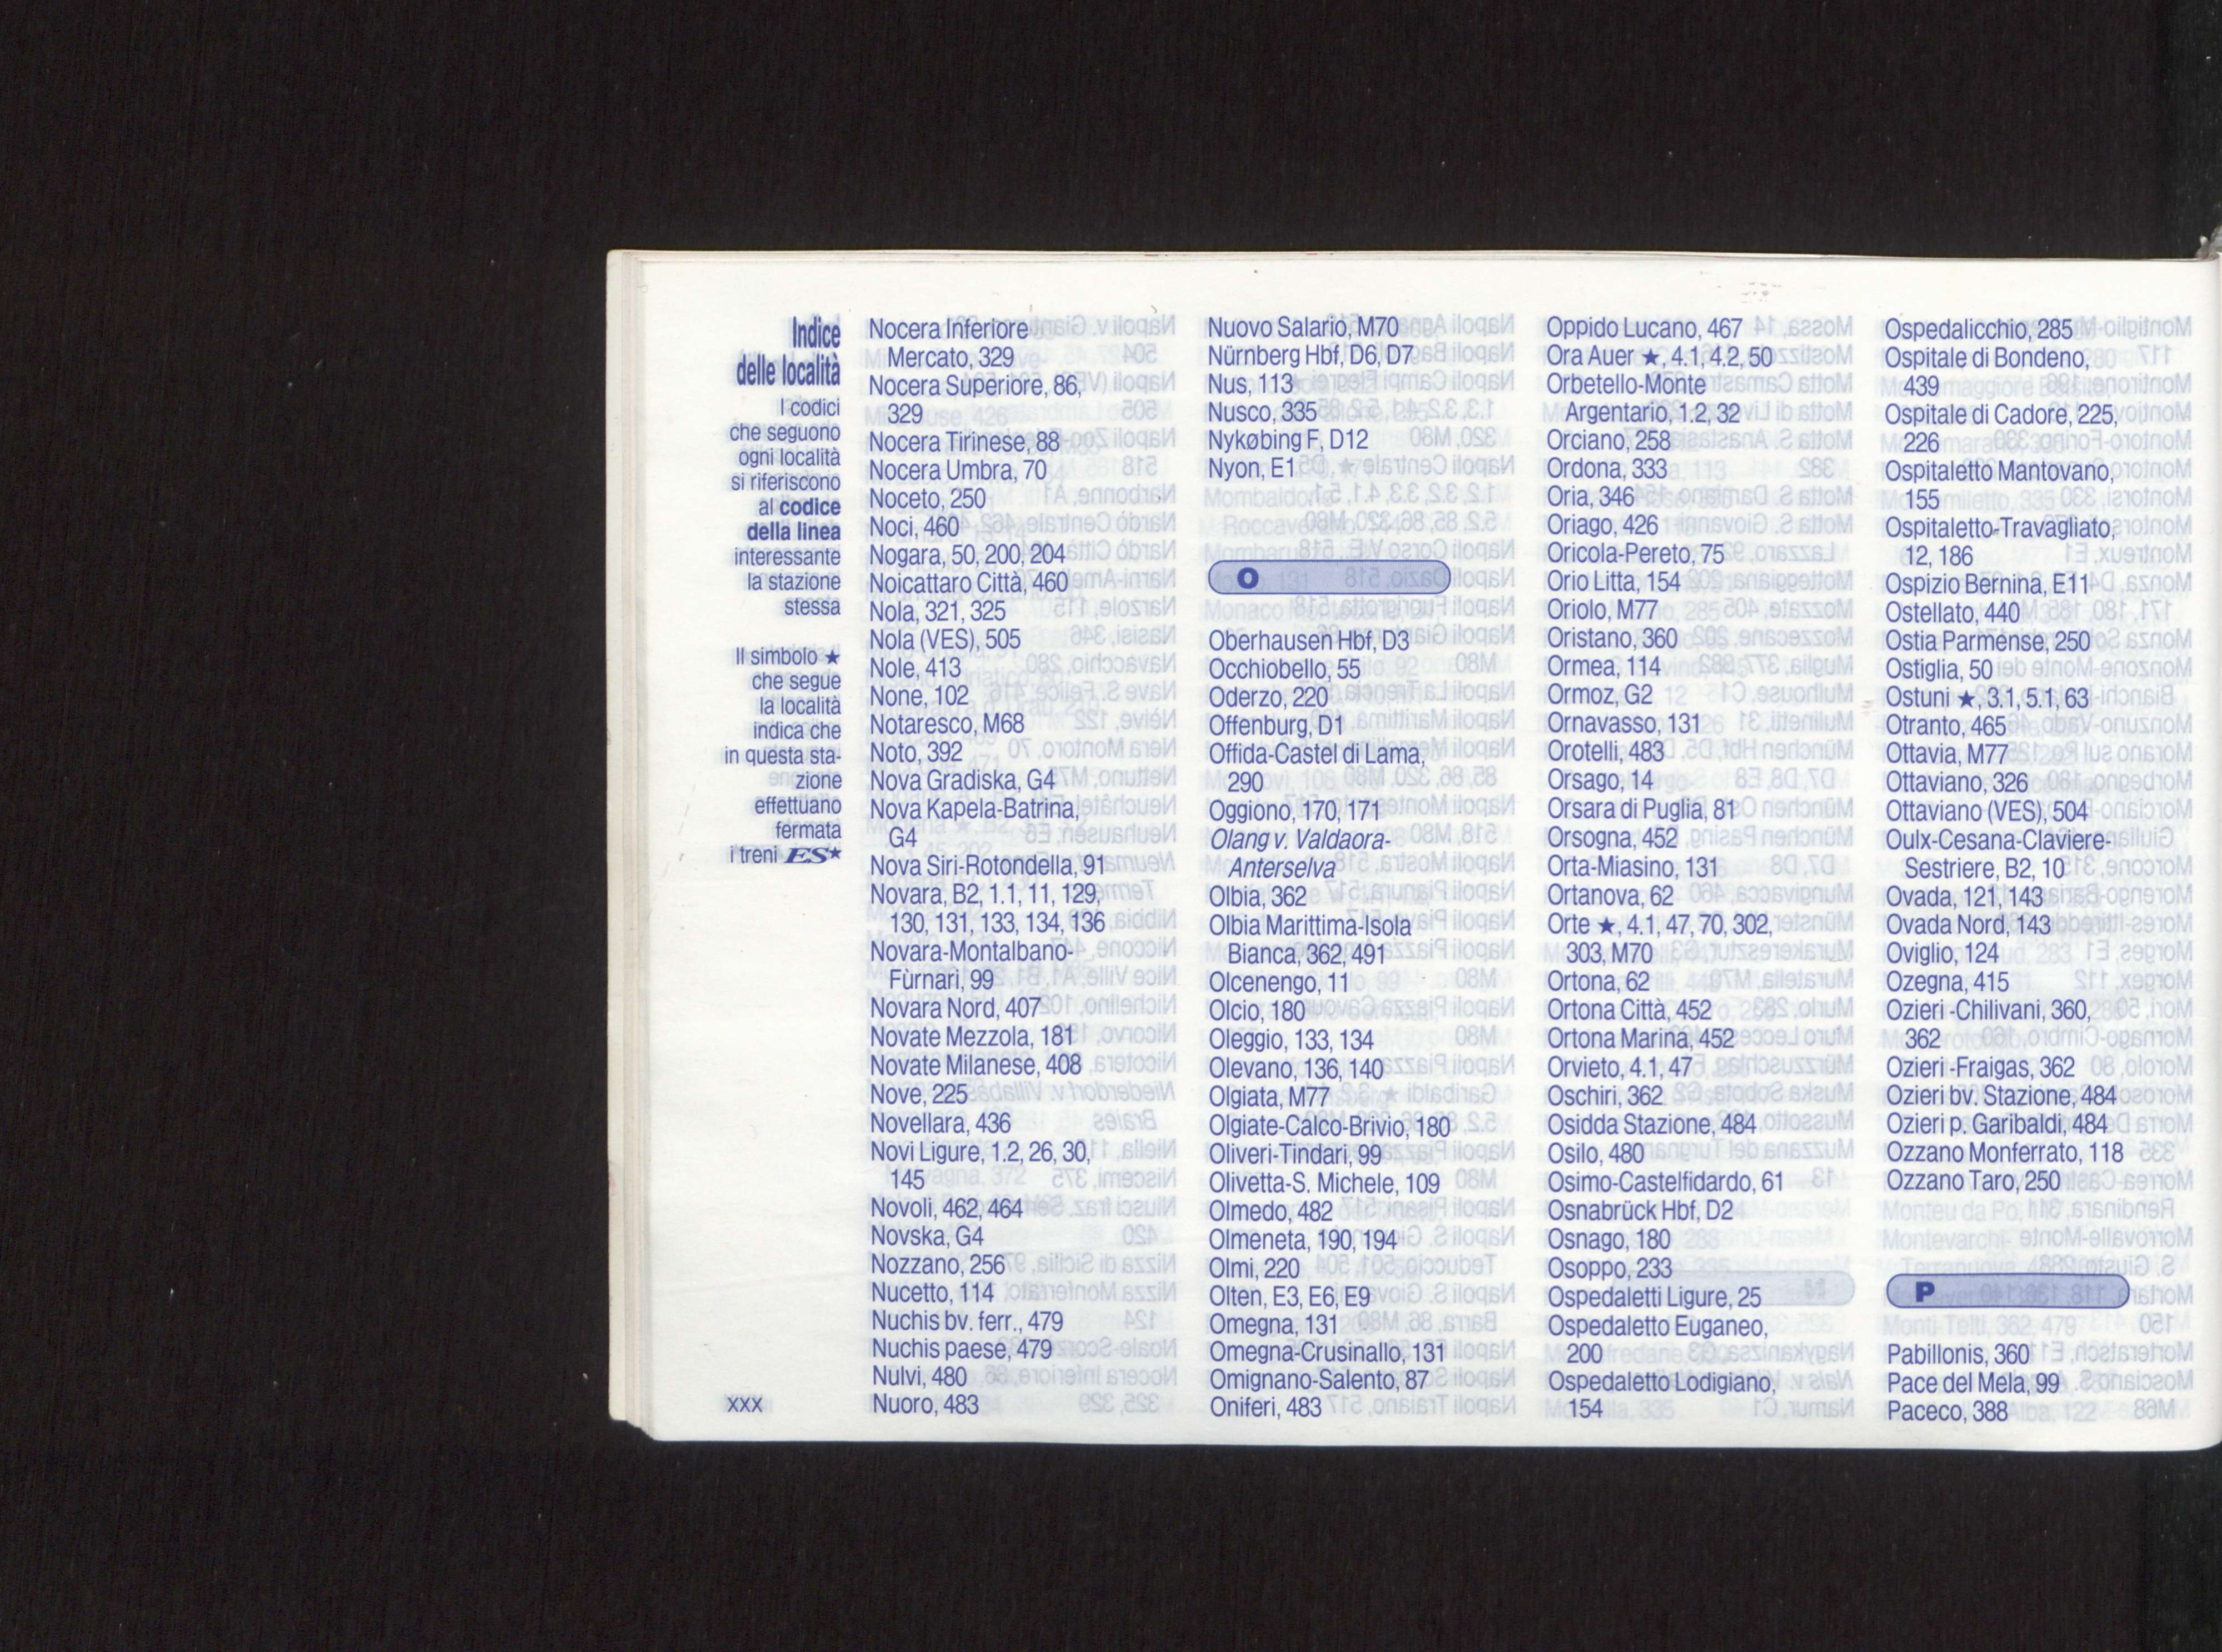 Indice
delle località
I codici
che seguono
ogni località
si riferiscono
al codice
della linea
interessante
la stazione
stessa
Il simbolo ★
che segue
la località
indica che
in questa sta-
zione
effettuano
fermata
i treni ES★
XXX
Nocera Inferiore
Mercato, 329
Nocera Superiore, 86,
329
Nocera Tirinese, 88
Nocera Umbra, 70
Noceto, 250
Noci, 460
Nogara, 50, 200, 204
Noicattaro Città, 460
Nola, 321, 325
Nola (VES), 505
Nole, 413
None, 102
Notaresco, M68
Noto, 392
Nova Gradiska, G4
Nova Kapela-Batrina,
G4
Nova Siri-Rotondella, 91
Novara, B2, 1.1, 11, 129,
130, 131, 133, 134, 136
Novara-Montalbano-
Fùrnari, 99
Novara Nord, 407
Novate Mezzola, 181
Novate Milanese, 408
Nove, 225
Novellara, 436
Novi Ligure, 1.2, 26, 30,
145
Novoli, 462, 464
Novska, G4
Nozzano, 256
Nucetto, 114
Nuchis bv. ferr., 479
Nuchis paese, 479
Nulvi, 480
Nuoro, 483
Nuovo Salario, M70
Nürnberg Hbf, D6, D7
Nus, 113
Nusco, 335
Nykøbing F, D12
Nyon, E1
O
Oberhausen Hbf, D3
Occhiobello, 55
Oderzo, 220
Offenburg, D1
Offida-Castel di Lama,
290
Oggiono, 170, 171
Olang v. Valdaora-
Anterselva
Olbia, 362
Olbia Marittima-Isola
Bianca, 362, 491
Olcenengo, 11
Olcio, 180
Oleggio, 133, 134
Olevano, 136, 140
Olgiata, M77
Olgiate-Calco-Brivio, 180
Oliveri-Tindari, 99
Olivetta-S. Michele, 109
Olmedo, 482
Olmeneta, 190, 194
Olmi, 220
Olten, E3, E6, E9
Omegna, 131
Omegna-Crusinallo, 131
Omignano-Salento, 87
Oniferi, 483
Oppido Lucano, 467
Ora Auer ★, 4.1, 4.2, 50
Orbetello-Monte
Argentario, 1.2, 32
Orciano, 258
Ordona, 333
Oria, 346
Oriago, 426
Oricola-Pereto, 75
Orio Litta, 154
Oriolo, M77
Oristano, 360
Ormea, 114
Ormoz, G2
Ornavasso, 131
Orotelli, 483
Orsago, 14
Orsara di Puglia, 81
Orsogna, 452
Orta-Miasino, 131
Ortanova, 62
Orte ★, 4.1, 47, 70, 302,
303, M70
Ortona, 62
Ortona Città, 452
Ortona Marina, 452
Orvieto, 4.1, 47
Oschiri, 362
Osidda Stazione, 484
Osilo, 480
Osimo-Castelfidardo, 61
Osnabrück Hbf, D2
Osnago, 180
Osoppo, 233
Ospedaletti Ligure, 25
Ospedaletto Euganeo,
200
Ospedaletto Lodigiano,
154
Ospedalicchio, 285
Ospitale di Bondeno,
439
Ospitale di Cadore, 225,
226
Ospitaletto Mantovano,
155
Ospitaletto-Travagliato,
12, 186
Ospizio Bernina, E11
Ostellato, 440
Ostia Parmense, 250
Ostiglia, 50
Ostuni ★, 3.1, 5.1, 63
Otranto, 465
Ottavia, M77
Ottaviano, 326
Ottaviano (VES), 504
Oulx-Cesana-Claviere-
Sestriere, B2, 10
Ovada, 121, 143
Ovada Nord, 143
Oviglio, 124
Ozegna, 415
Ozieri -Chilivani, 360,
362
Ozieri -Fraigas, 362
Ozieri bv. Stazione, 484
Ozieri p. Garibaldi, 484
Ozzano Monferrato, 118
Ozzano Taro, 250
P
Pabillonis, 360
Pace del Mela, 99
Paceco, 388